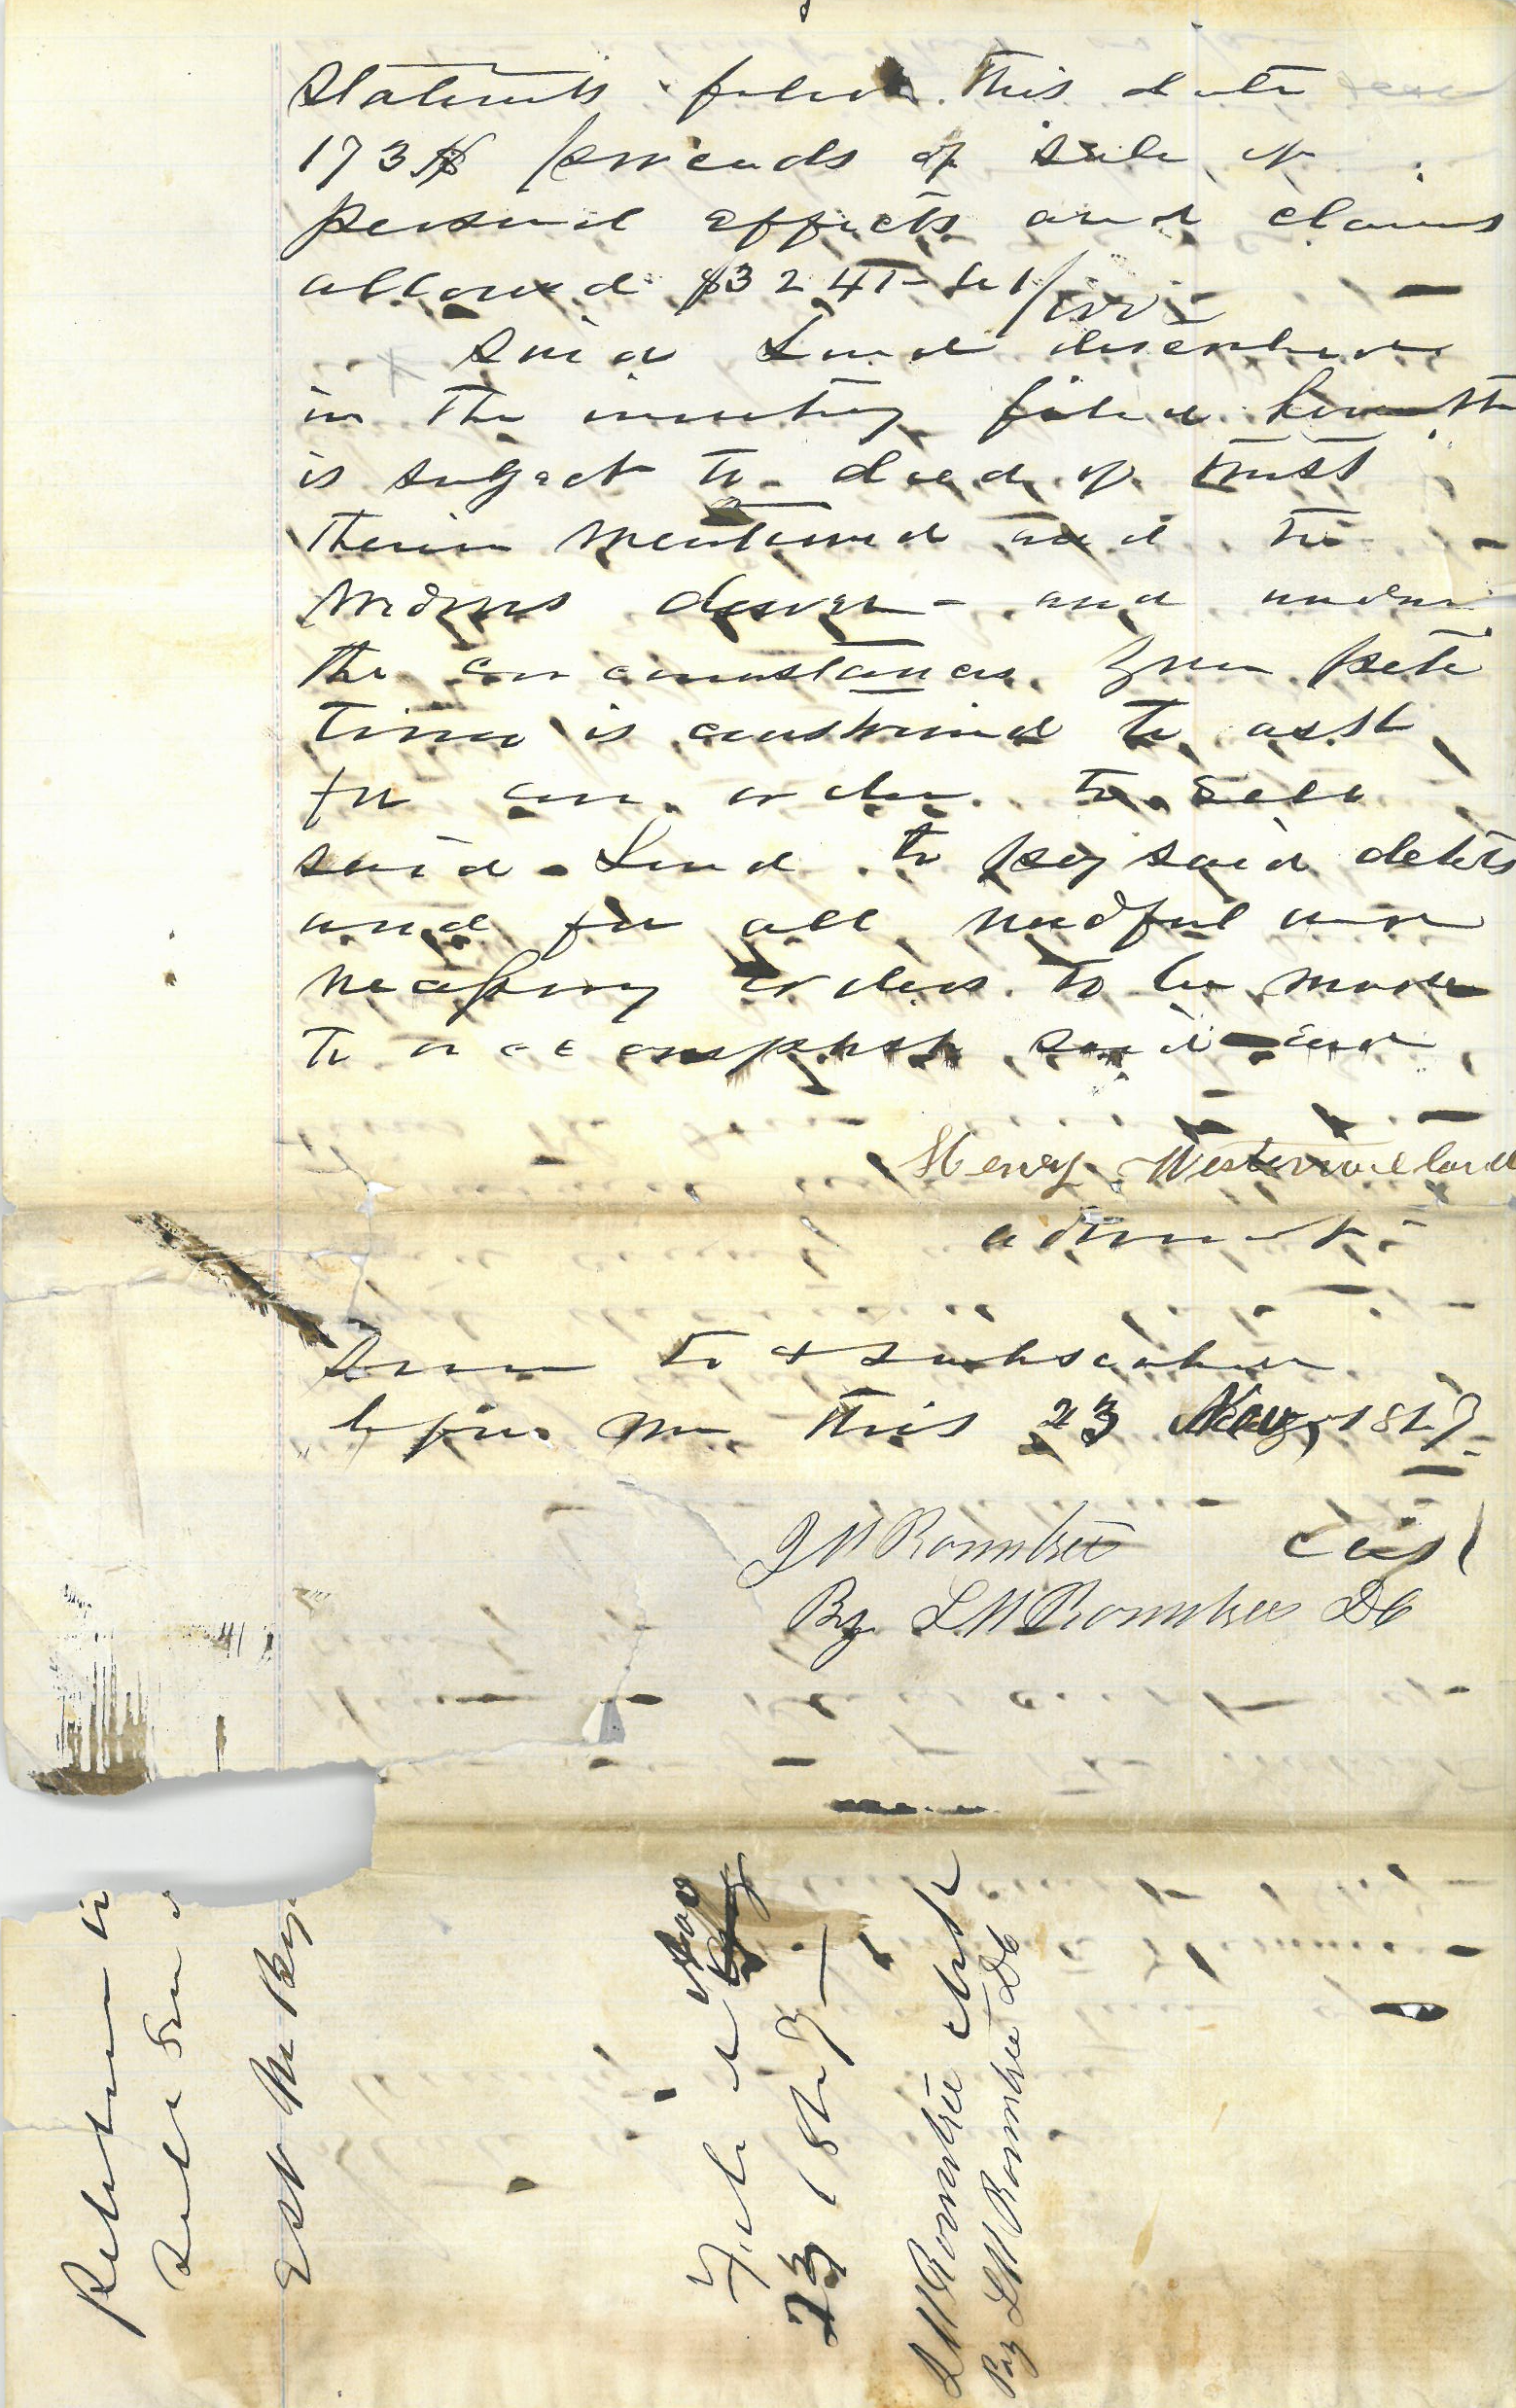 Statements filed this date
173$ proceeds of sale of
personal effects and claims
allowed $3241
Said Land described
in the inventory filed herewith
is subject to deed of trust
therein mentioned and to
widows dower - and under
the circumstances your peti
tioner is constrained to ask
for an order to sell
said Land to pay said debts
and for all needful and
necessary orders to be made
to accomplish said end
Henry Westermoelland
admnst
Sworn to & subscribed
before me this 23 Nov 18
J M Rountree Clk
By L M Rountree DC
Petition to
Sale
Est
Filed Nov
23 18
J M Rountree Clerk
By L M Rountree DC